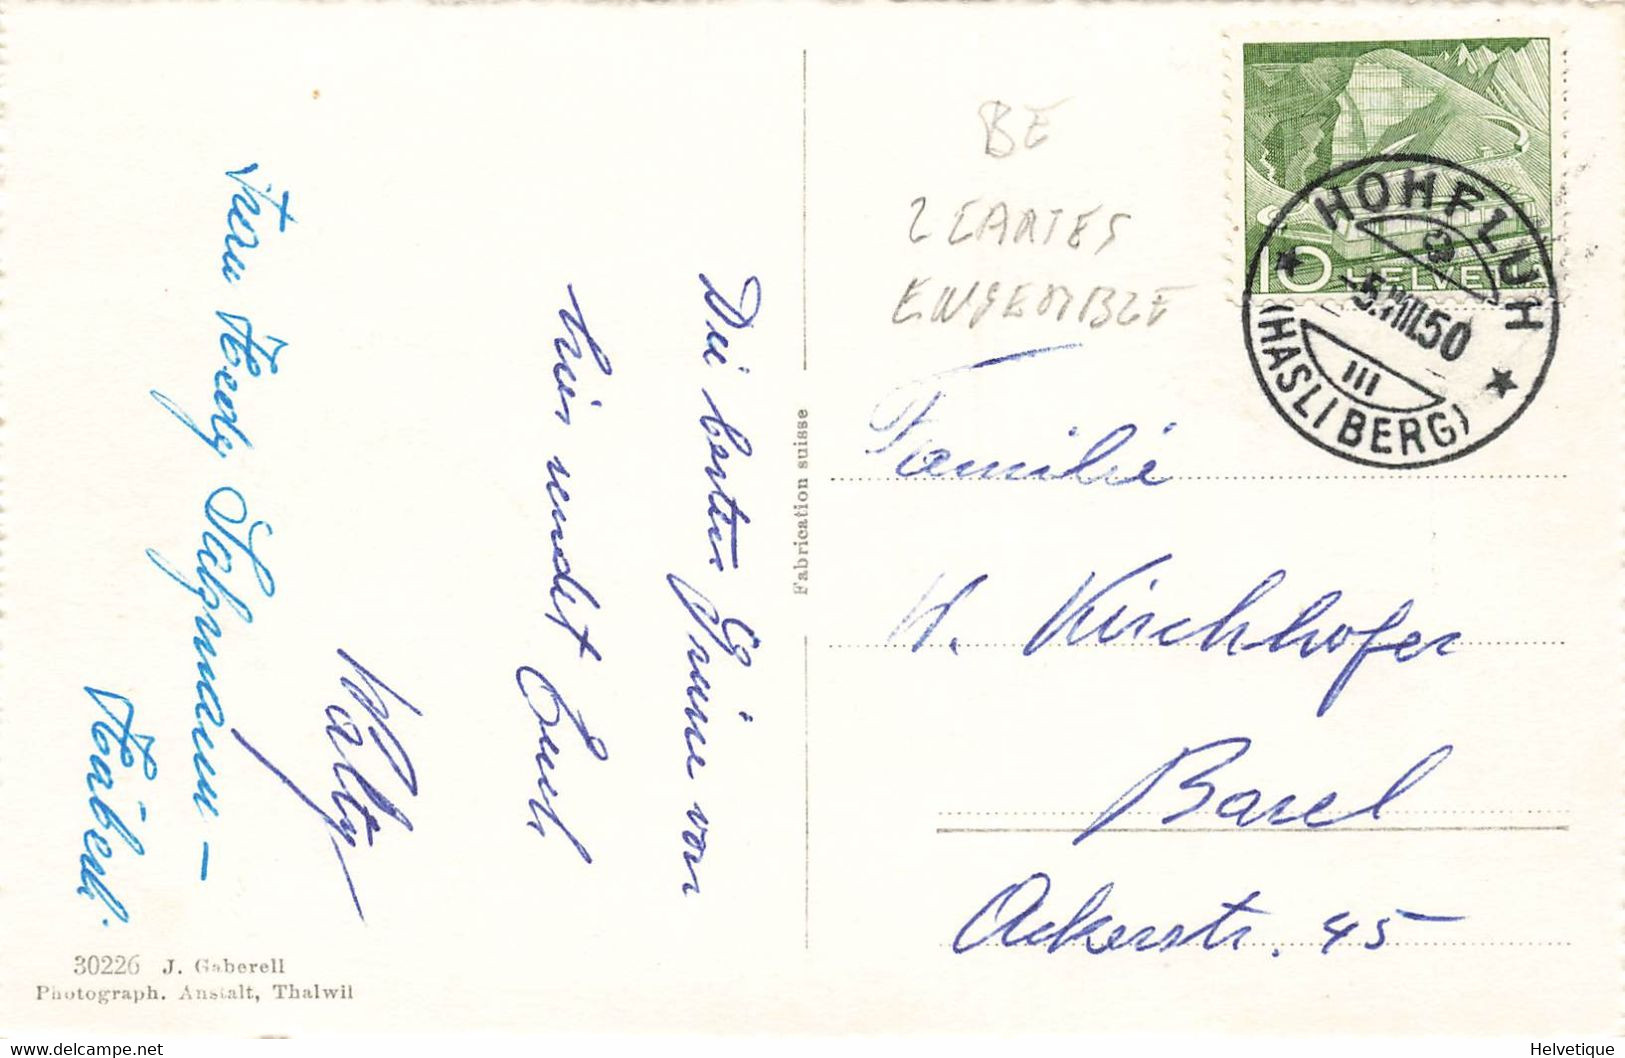 Die besten Grüsse von
hier sendet Euch
Wolly
Frau Aberly Salzmann –
BE
2 CARTES
ENSEMBLE
10 HELVETIA
HOHFLUH
a
-5.VIII.50
III
(HASLIBERG)
Familie
W. Kirchhofer
Basel
Ackerstr. 45
Fabrication suisse
30226 J. Gaberell
Photograph. Anstalt, Thalwil
delcampe.net
Helvetique